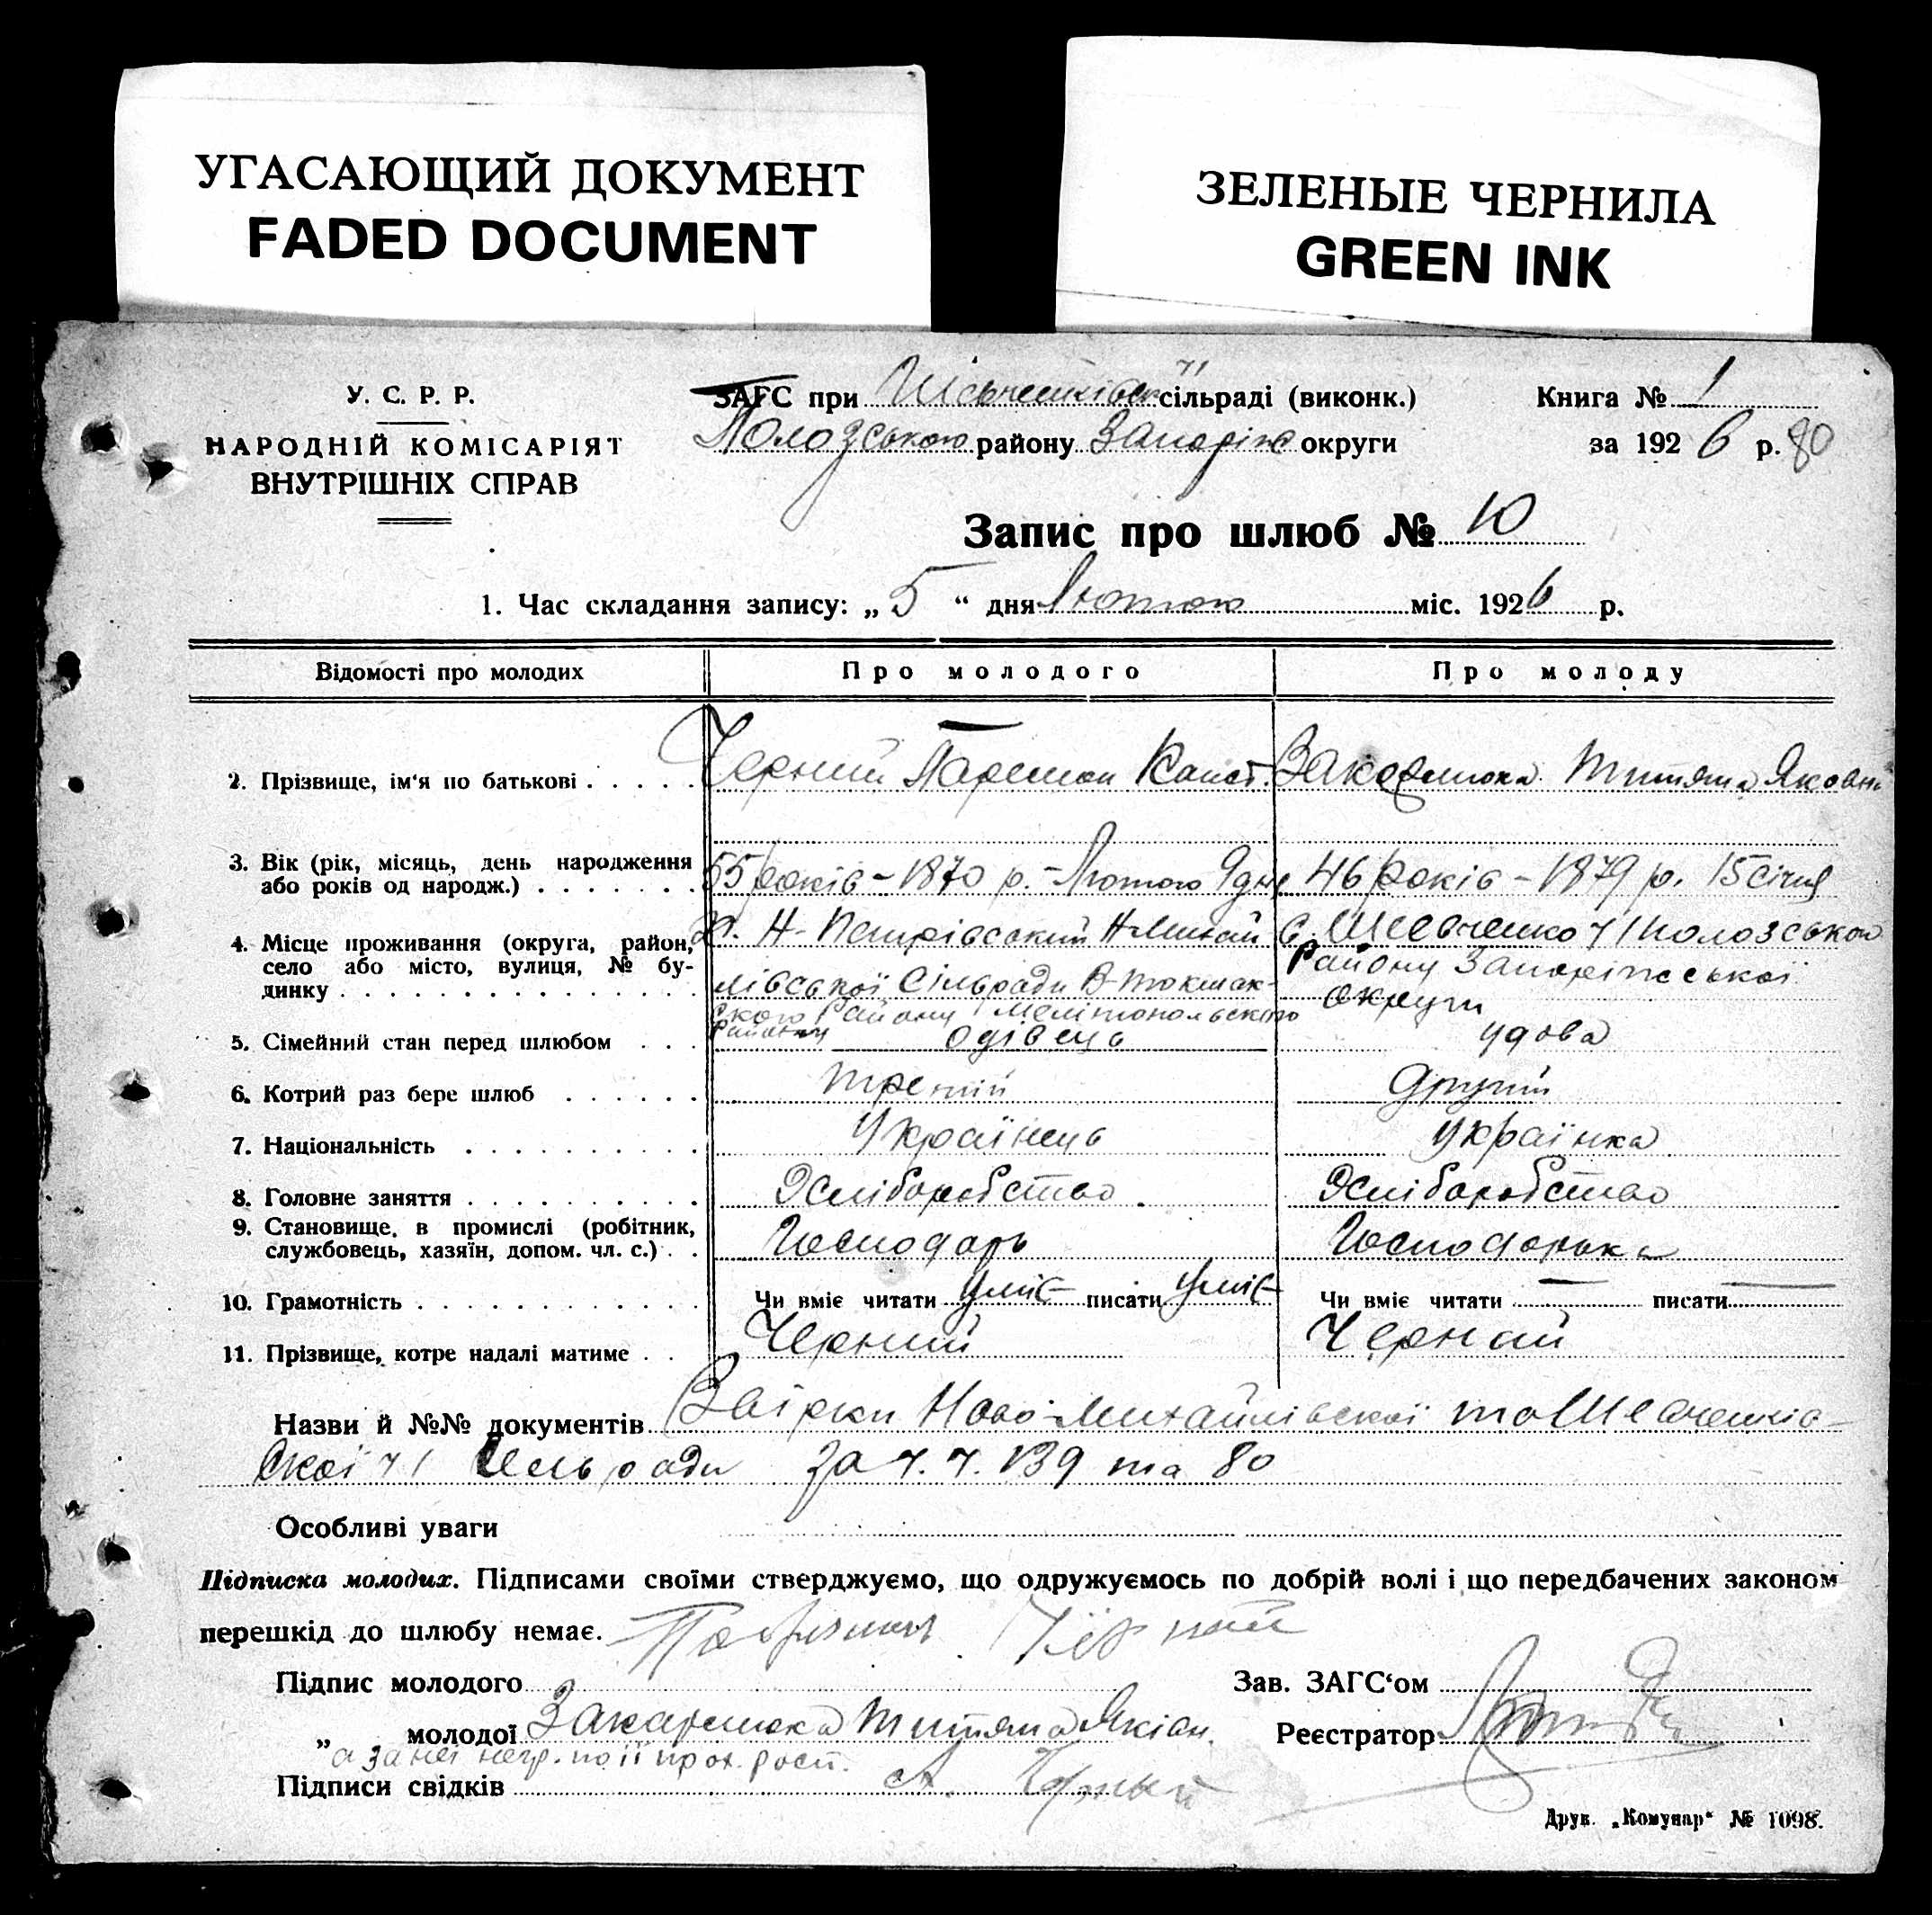 УГАСАЮЩИЙ ДОКУМЕНТ
FADED DOCUMENT
ЗЕЛЕНЫЕ ЧЕРНИЛА
GREEN INK
У. С. Р. Р.
НАРОДНІЙ КОМІСАРІЯТ
ВНУТРІШНІХ СПРАВ
ЗАГС при сільраді (виконк.)
Пологською району Запоріж округи
Книга № 1
за 1926 р. 80
Запис про шлюб № 10
1. Час складання запису: „ 5 “ дня Лютого міс. 1926 р.
Відомості про молодих
Про молодого
Про молоду
2. Прізвище, ім'я по батькові . . . . .
Черний Паремон Конст.
Титяна Яковн
3. Вік (рік, місяць, день народження
або років од народж.) . . . . . . .
55 років – 1870 р. – Лютого 9 дня
46 років – 1879 р. 15 січня
4. Місце проживання (округа, район,
село або місто, вулиця, № бу-
динку . . . . . . . . . . . . . . .
х. Н-Петрівський Н-Михай
лівської Сільради В-Токмак-
ского Району Мелітопольского
с. Шевченко ч1 Пологського
Району Запоріжської
округи
5. Сімейний стан перед шлюбом . . .
одівець
удова
6. Котрий раз бере шлюб . . . . . .
третій
другий
7. Національність . . . . . . . . . .
Українець
українка
8. Головне заняття . . . . . . . . . .
Хліборобство
Хліборобство
9. Становище. в промислі (робітник,
службовець, хазяїн, допом. чл. с.) . .
Господарь
Господарька
10. Грамотність . . . . . . . . . . . .
Чи вміє читати уміє писати уміє
Чи вміє читати — писати —
11. Прізвище, котре надалі матиме . .
Черний
Черний
Назви й №№ документів Звірки Ново-Михайлівської та Шевченків-
ської ч1 Сільради за ч.ч. 139 та 80
Особливі уваги
Підписка молодих. Підписами своїми стверджуємо, що одружуємось по добрій волі і що передбачених законом
перешкід до шлюбу немає.
Підпис молодого
Зав. ЗАГС‘ом
„ молодої Титяна
Реєстратор
а за неї негр. по її прох. росп.
Підписи свідків А. Чорный
Друк. „Комунар“ № 1098.